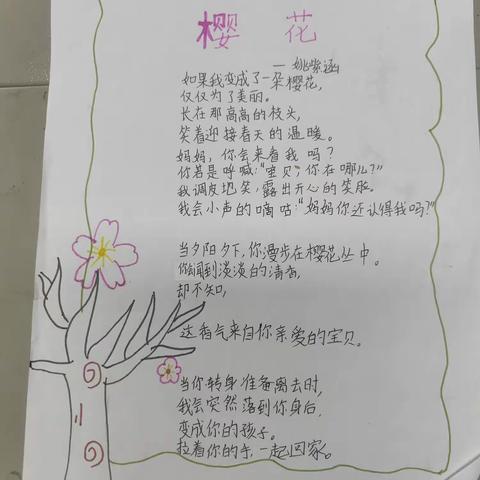 樱 花
—姚紫涵
如果我变成了一朵樱花,
仅仅为了美丽。
长在那高高的枝头,
笑着迎接春天的温暖。
妈妈,你会来看我吗?
你若是呼喊:“宝贝,你在哪儿?”
我调皮地笑,露出开心的笑脸。
我会小声的嘀咕:“妈妈你还认得我吗?”
当夕阳夕下,你漫步在樱花丛中。
你闻到淡淡的清香,
却不知,
这香气来自你亲爱的宝贝。
当你转身准备离去时,
我会突然落到你身后,
变成你的孩子。
拉着你的手,一起回家。